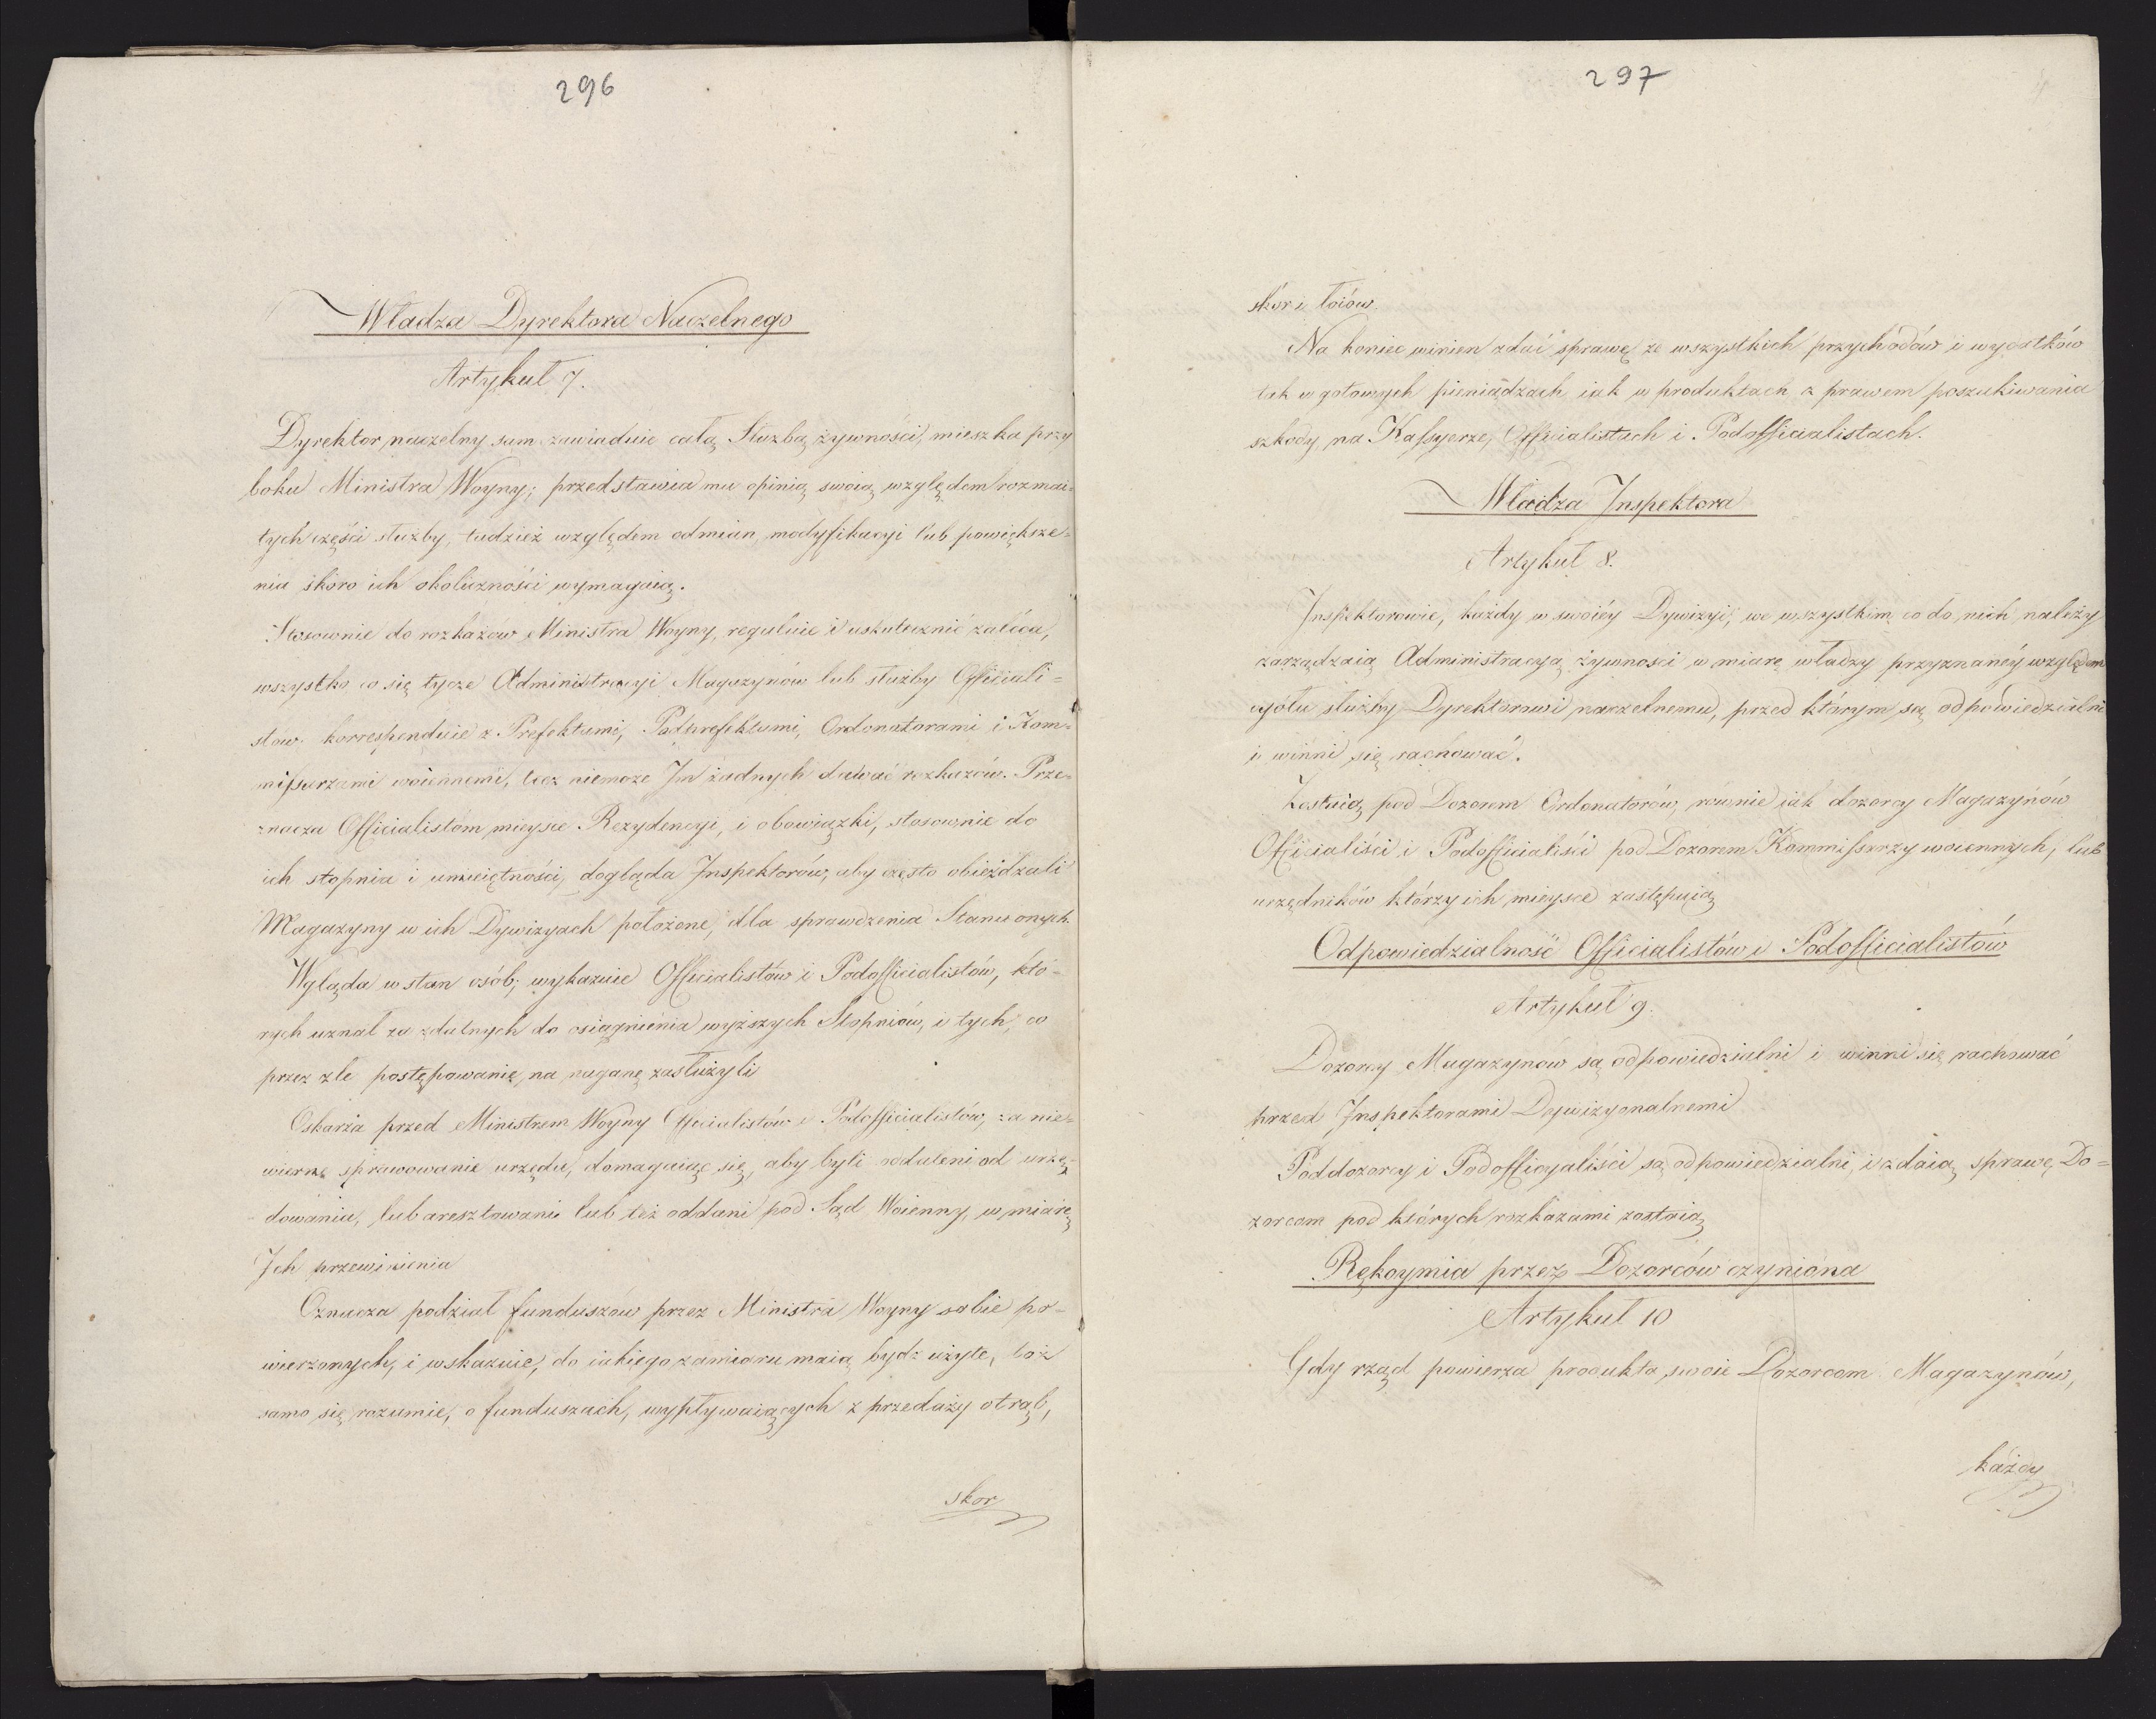 296
Władza Dyrektora Naczelnego
Artykuł 7.
Dyrektor naczelny sam zawiaduie całą Służbą żywności, mieszka przy
boku Ministra Woyny; przedstawia mu opinią swoią względem rozmai=
tych części służby, tudzież względem odmian, modyfikacyi lub powiększe=
nia skoro ich okoliczności wymagaią.
Stosownie do rozkazow Ministra Woyny, reguluie i uskutecznić zaleca,
wszystko co się tycze Administracyi Magazynów lub służby Officiali=
stow. korresponduie z Prefektami, Podprefektami, Ordonatorami i Kom=
missarzami woiennemi, lecz niemoze Im żadnych dawać rozkazów. Prze=
znacza Officialistom mieysce Rezydencyi, i obowiązki, stosownie do
ich stopnia i umieiętności, dogląda Inspektorów, aby często obieżdzali
Magazyny w ich Dywizyach położone, dla sprawdzenia Stanu onych.
Wgląda w stan osób; wykazuie Officialistów i Podofficialistów, któ=
rych uznał za zdatnych do osiągnienia wyższych Stopniów, i tych, co
przez złe postępowanie, na naganę zasłużyli
Oskarża przed Ministrem Woyny Officialistów i Podofficialistów, za nie=
wierne sprawowanie urzędu, domagaiąc się, aby byli oddaleni od urzę=
dowania, lub aresztowani lub też oddani pod Sąd Woienny, w miarę
Ich przewinienia
Oznacza podział funduszow przez Ministra Woyny sobie po=
wierzonych, i wskazuie, do iakiego zamiaru maią bydz użyte, toż
samo się rozumie, o funduszach, wypływaiących z przedaży otrąb,
skor
297
skór i łoiów.
Na koniec winien zdać sprawę ze wszystkich przychodów i wydatków
tak w gotowych pieniądzach iak w produktach z prawem poszukiwania
szkody na Kassyerze, Officialistach i Podofficialistach.
Władza Inspektora
Artykuł 8.
Inspektorowie, każdy w swoiéy Dywizyi, we wszystkim co do nich należy
zarządzaią Administracyą żywności w miarę władzy przyznanéy względem
ogółu służby Dyrektorowi naczelnemu, przed którym są odpowiedzialni
i winni się rachować.
Zostaią pod Dozorem Ordonatorów, rownie iak dozorcy Magazynów
Officialiści i Podofficialiści pod Dozorem Kommissarzy woiennych, lub
urzędników którzy ich mieysce zastępuią
Odpowiedzialność Officialistów i Podofficialistów
Artykuł 9.
Dozorcy Magazynów są odpowiedzialni i winni się rachować
przed Inspektorami Dywizyonalnemi
Poddozorcy i Podofficyaliści są odpowiedzialni, i zdaią sprawę Do=
zorcom pod których rozkazami zostaią
Rękoymia przez Dozorców czyniona
Artykuł 10
Gdy rząd powierza produkta swoie Dozorcom Magazynów,
każdy